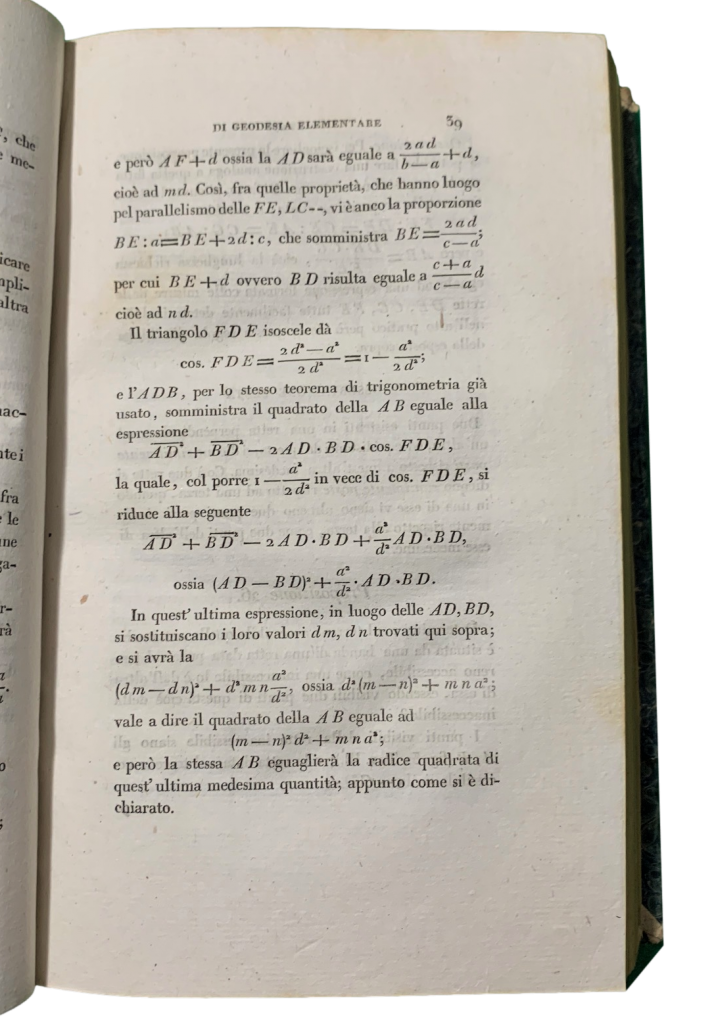 DI GEODESIA ELEMENTARE 59
e però AF+d ossia la AD sarà eguale a 2ad/(b—a) + d,
cioè ad md. Così, fra quelle proprietà, che hanno luogo
pel parallelismo delle FE, LC--, vi è anco la proporzione
BE : a = BE + 2d : c, che somministra BE = 2ad/(c—a);
per cui BE + d ovvero BD risulta eguale a (c+a)/(c—a) d
cioè ad nd.
Il triangolo FDE isoscele dà
cos. FDE = (2d²—a²)/(2d²) = 1 — a²/(2d²);
e l'ADB, per lo stesso teorema di trigonometria già
usato, somministra il quadrato della AB eguale alla
espressione
A̅D̅² + B̅D̅² — 2AD · BD · cos. FDE,
la quale, col porre 1 — a²/(2d²) in vece di cos. FDE, si
riduce alla seguente
A̅D̅² + B̅D̅² — 2AD · BD + a²/d² AD · BD,
ossia (AD — BD)² + a²/d² · AD · BD.
In quest' ultima espressione, in luogo delle AD, BD,
si sostituiscano i loro valori dm, dn trovati qui sopra;
e si avrà la
(dm — dn)² + d² mn a²/d², ossia d² (m — n)² + mna²;
vale a dire il quadrato della AB eguale ad
(m — n)² d² + mna²;
e però la stessa AB eguaglierà la radice quadrata di
quest' ultima medesima quantità; appunto come si è di-
chiarato.
, che
me-
icare
apli-
altra
nac-
nte i
fra
le
ne
ga-
r-
rà